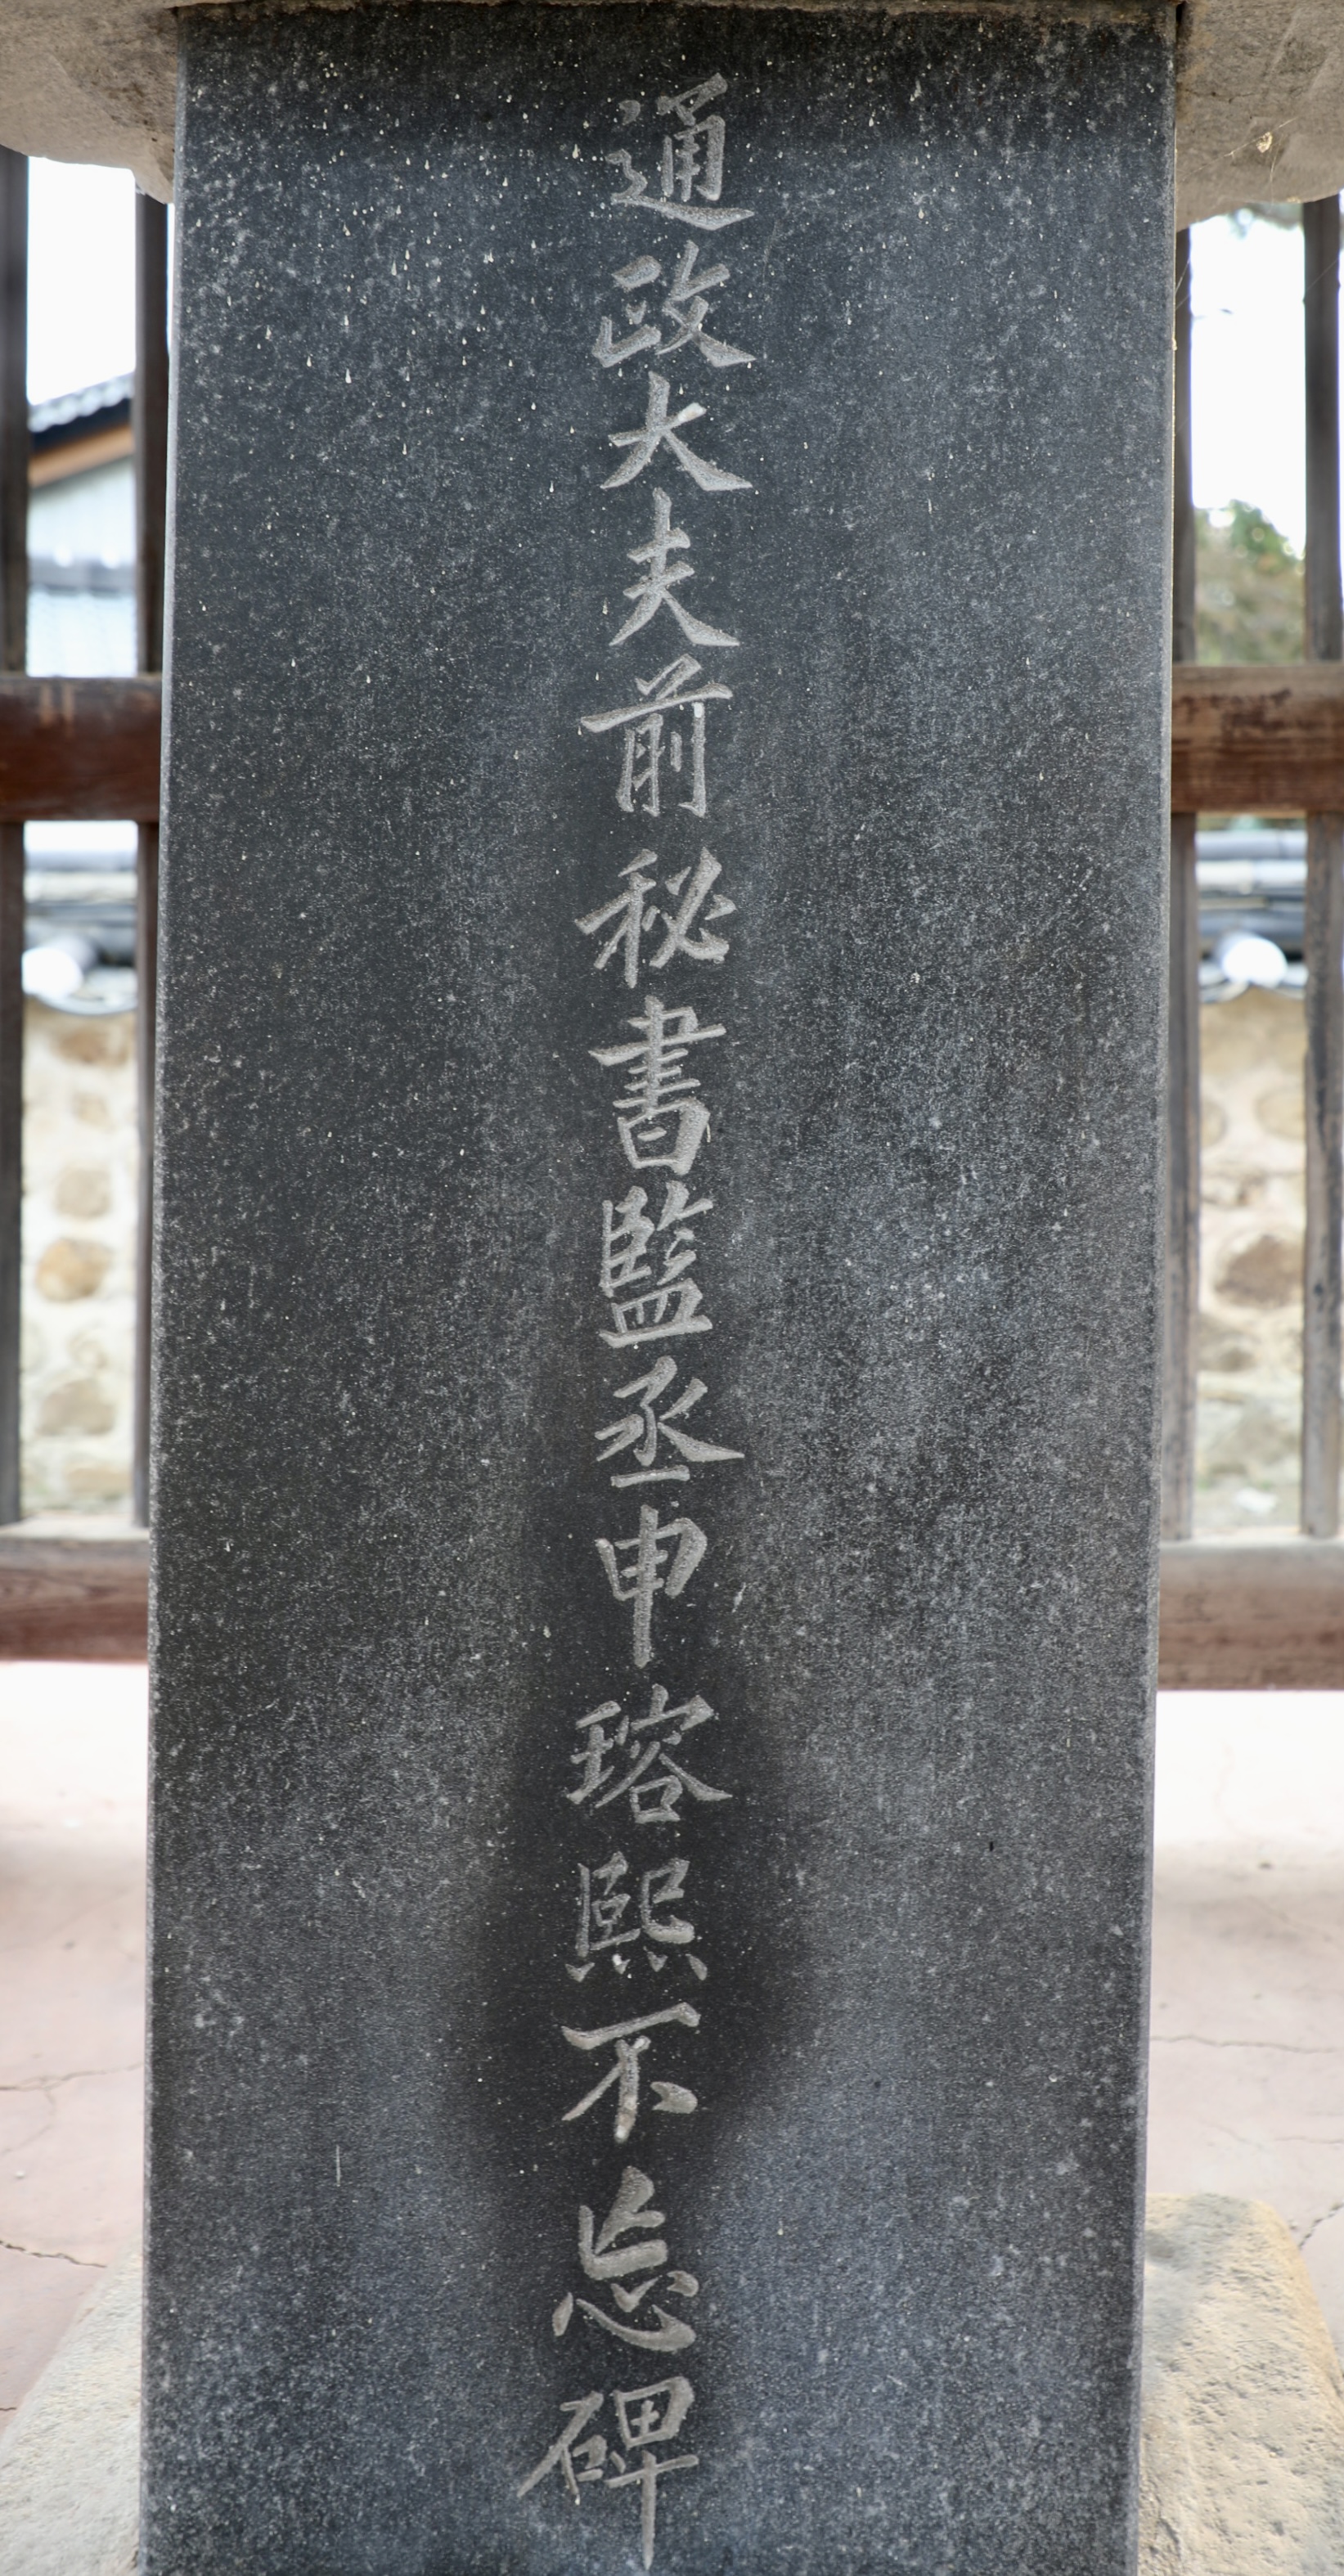 通政大夫前秘書監丞申瑢熙不忘碑